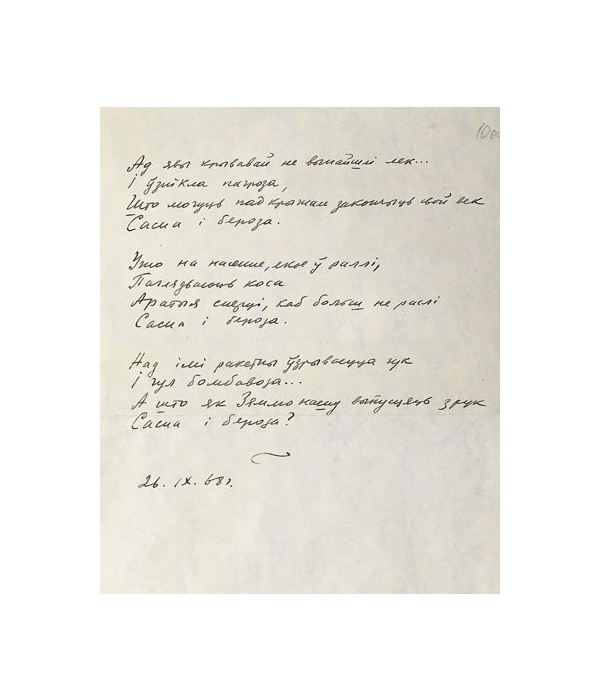 100
Ад явы крывавай не вынайшлі лек...
І ўзнікла пагроза,
Што могуць пад крыжам закончыць свой век
Сасна і бяроза.
Ужо на насенне, якое ў раллі,
Паглядваюць коса
Аратыя смерці, каб больш не раслі
Сасна і бяроза.
Над імі ракетны ўзрываецца гук
І гул бомбавоза...
А што як Зямлю нашу выпусцяць з рук
Сасна і бяроза?
26. IX. 68 г.